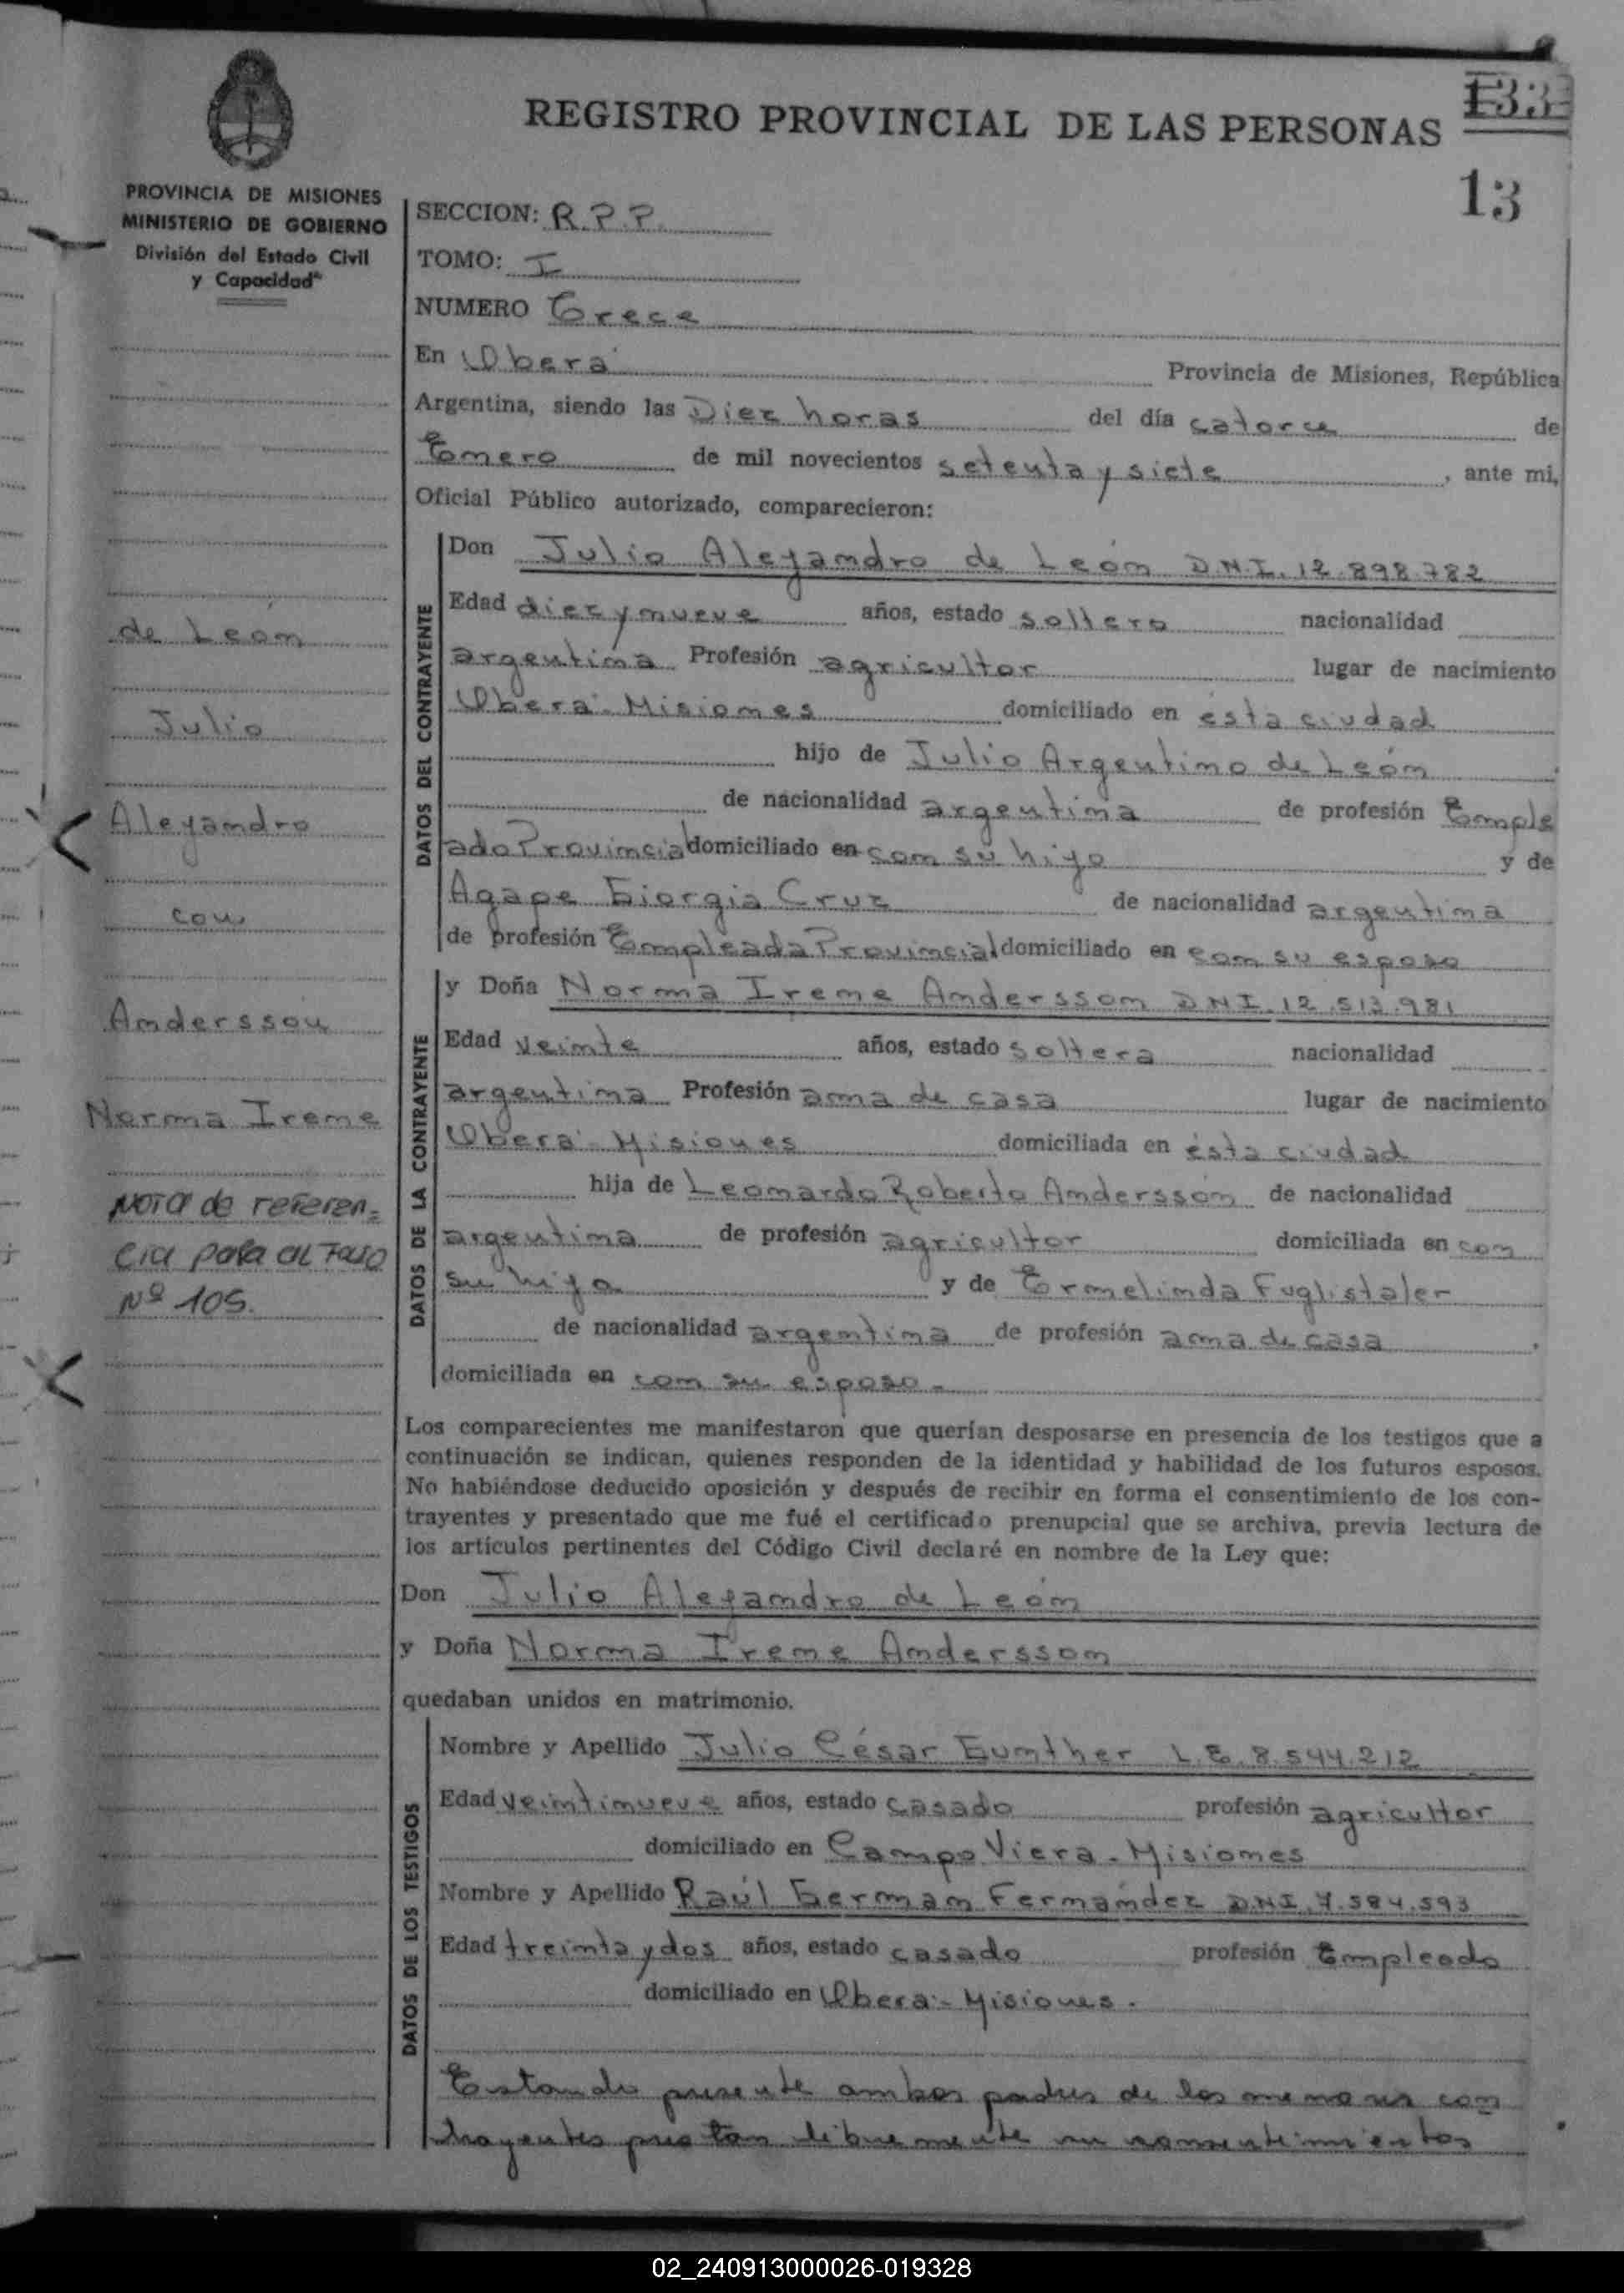 133
REGISTRO PROVINCIAL DE LAS PERSONAS
13
PROVINCIA DE MISIONES
MINISTERIO DE GOBIERNO
División del Estado Civil
y Capacidad
de León
Julio
Alejandro
con
Andersson
Norma Irene
Nota de referen=
cia para al Folio
Nº 105.
SECCION: R.P.P.
TOMO: I
NUMERO Trece
En Oberá Provincia de Misiones, República
Argentina, siendo las Diez horas del día catorce de
Enero de mil novecientos setenta y siete, ante mi,
Oficial Público autorizado, comparecieron:
DATOS DEL CONTRAYENTE
Don Julio Alejandro de León D.N.I. 12.898.782
Edad diez y nueve años, estado soltero nacionalidad
argentina Profesión agricultor lugar de nacimiento
Oberá - Misiones domiciliado en ésta ciudad
hijo de Julio Argentino de León
de nacionalidad argentina de profesión Emple
ado Provincial domiciliado en con su hijo y de
Agape Giorgia Cruz de nacionalidad argentina
de profesión Empleada Provincial domiciliado en con su esposo
DATOS DE LA CONTRAYENTE
y Doña Norma Irene Andersson D.N.I. 12.513.981
Edad veinte años, estado soltera nacionalidad
argentina Profesión ama de casa lugar de nacimiento
Oberá - Misiones domiciliada en ésta ciudad
hija de Leonardo Roberto Andersson de nacionalidad
argentina de profesión agricultor domiciliada en con
su hija y de Ermelinda Fuglistaler
de nacionalidad argentina de profesión ama de casa.
domiciliada en con su esposo.-
Los comparecientes me manifestaron que querían desposarse en presencia de los testigos que a
continuación se indican, quienes responden de la identidad y habilidad de los futuros esposos.
No habiéndose deducido oposición y después de recibir en forma el consentimiento de los con-
trayentes y presentado que me fué el certificado prenupcial que se archiva, previa lectura de
los artículos pertinentes del Código Civil declaré en nombre de la Ley que:
Don Julio Alejandro de León
y Doña Norma Irene Andersson
quedaban unidos en matrimonio.
DATOS DE LOS TESTIGOS
Nombre y Apellido Julio César Gunther L.E. 8.544.212
Edad veintinueve años, estado casado profesión agricultor
domiciliado en Campo Viera - Misiones
Nombre y Apellido Raúl German Fernández D.N.I. 7.584.593
Edad treinta y dos años, estado casado profesión Empleado
domiciliado en Oberá - Misiones.
Estando presente ambos padres de los menores con
trayentes prestan libremente su consentimientos
02_240913000026-019328